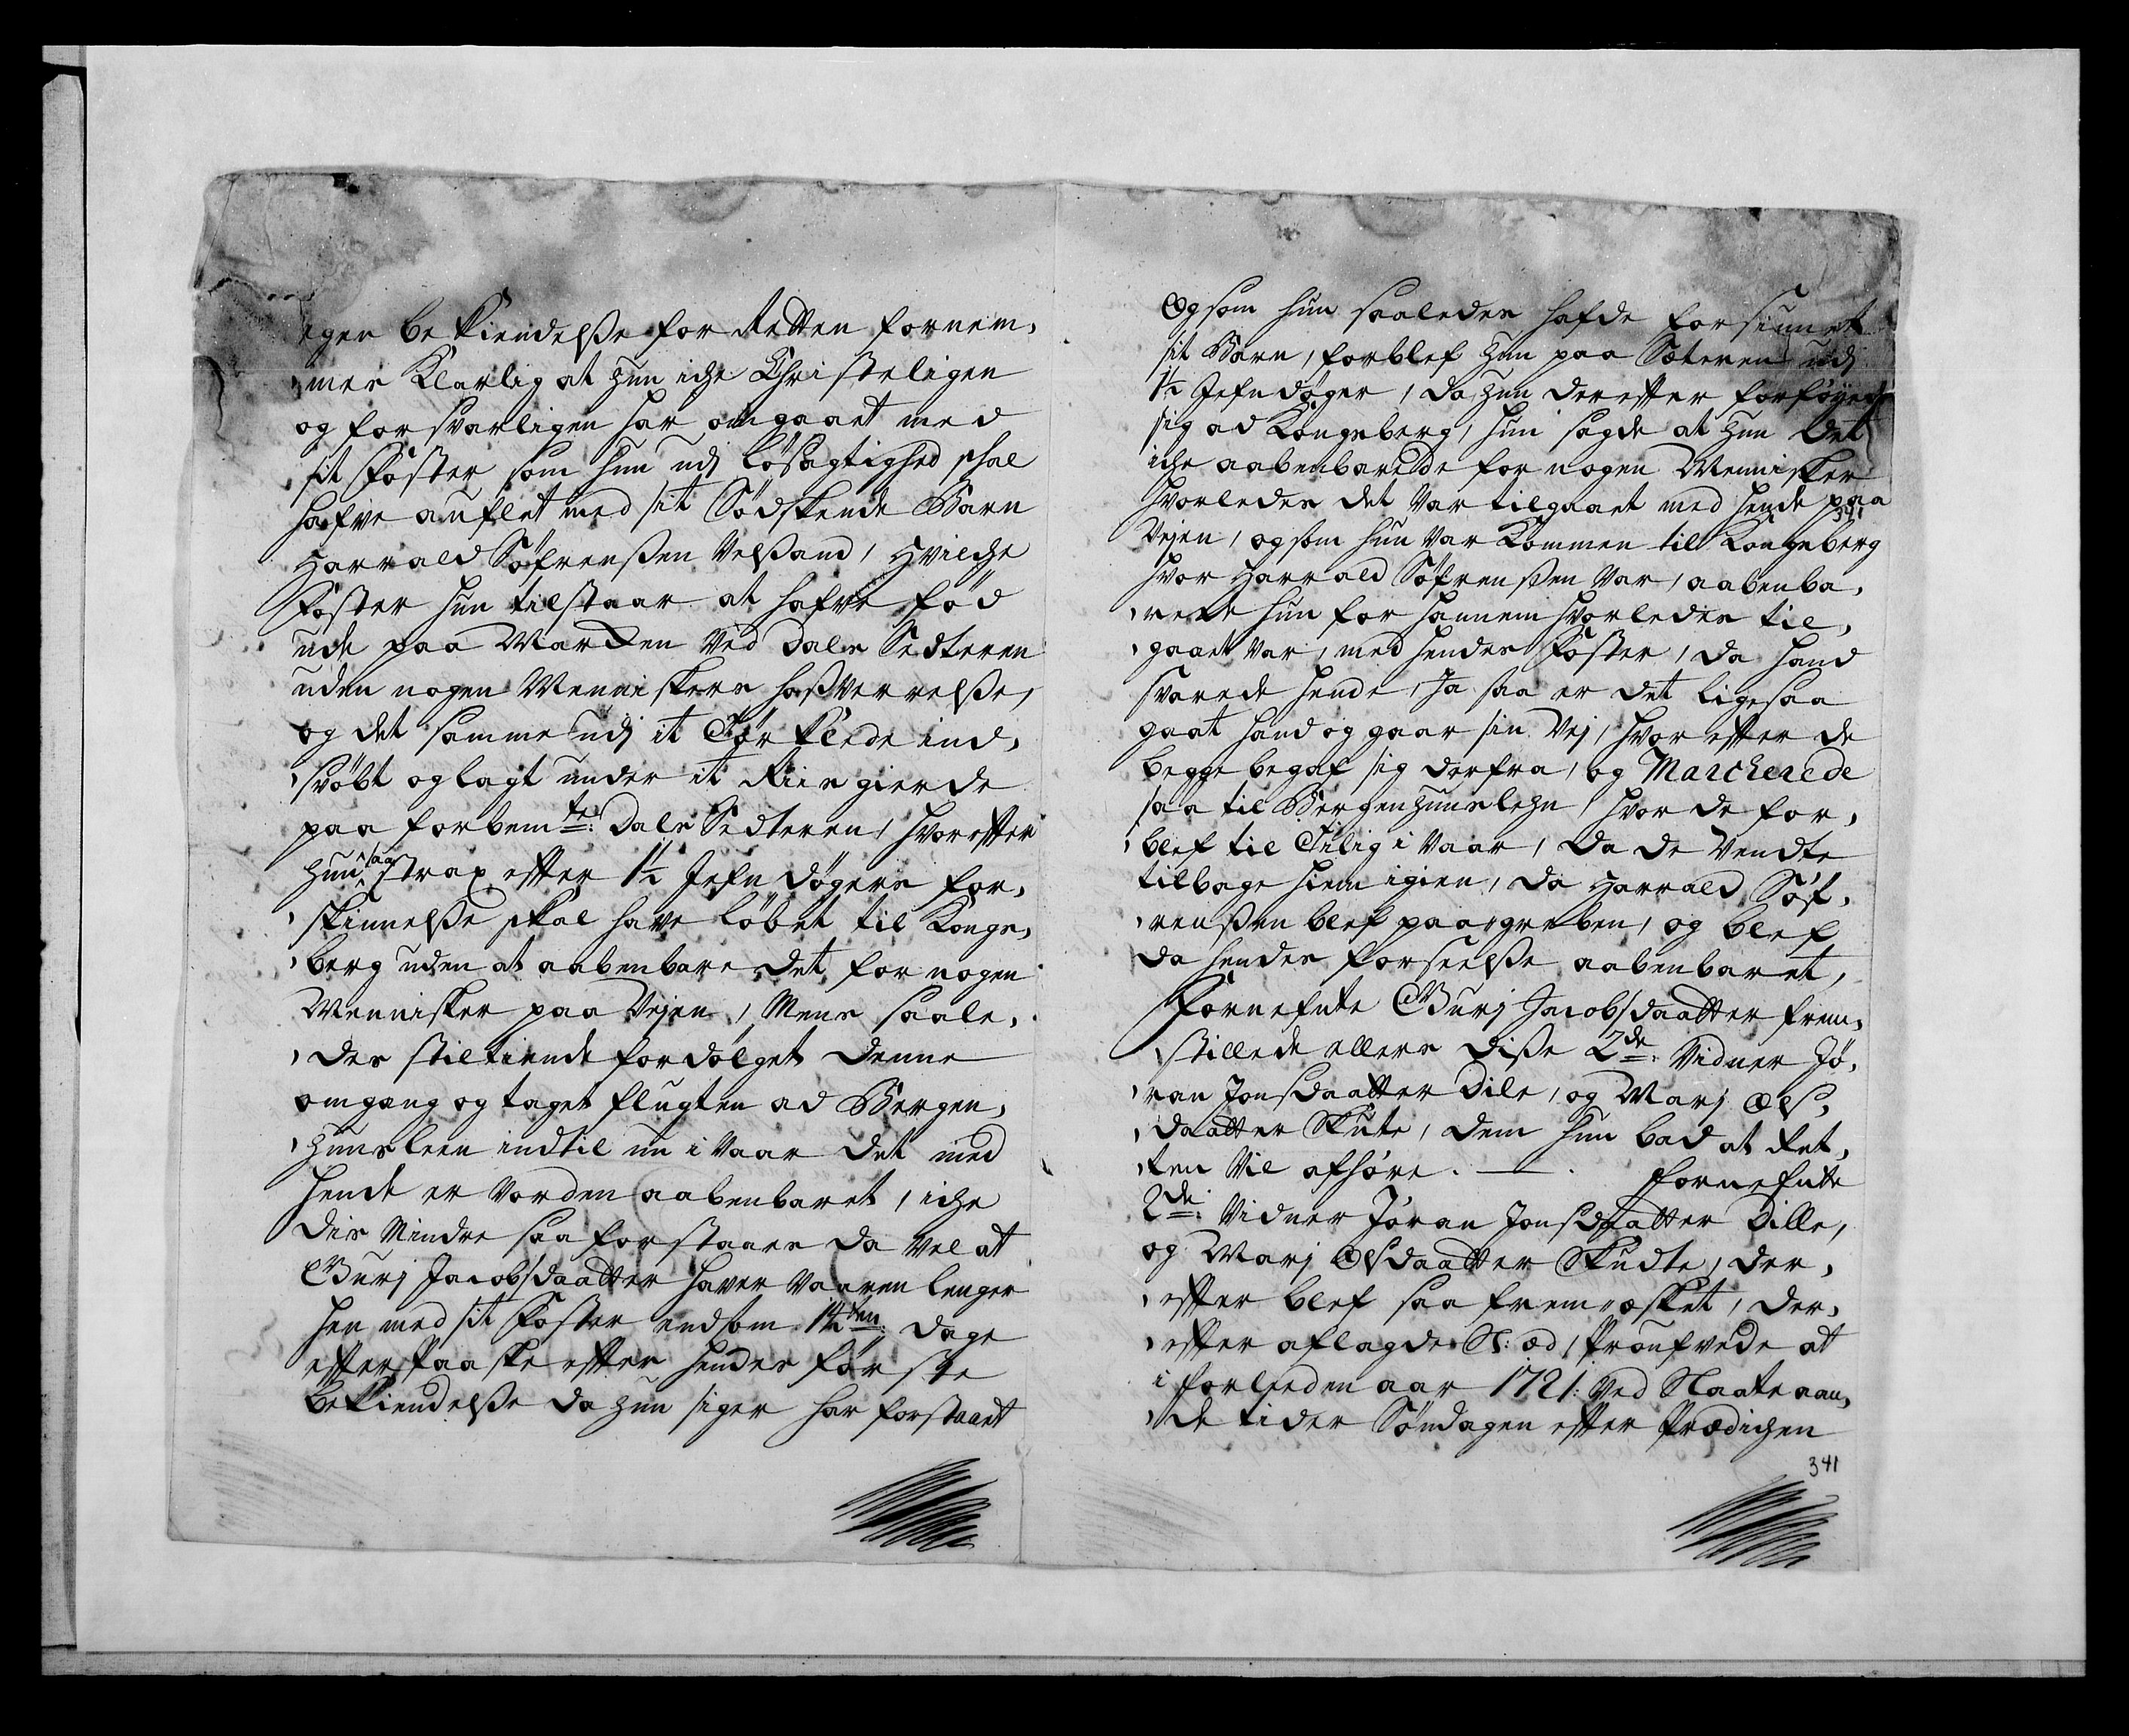 egen bekiendelsse for Retten fornem,
,mes Klarlig at hun iche Christeligen
og forsvarligen har omgaaet med
sit Foster som hun udj løsagtighed schal
hafve auflet med sit Sødskende Barn
Harrald Søfrenssen Velssand, hvilche
Foster hun tilstaar at hafve fød
ude paa Marcken ved Dals Sedteren
uden nogen Menniskers hossverrelsse,
og det samme udj it Tør klede ind,
,svøbt og lagt under it Riis gierde
paa forbemte: Dals Sedteren, hvorefter
hun saa strax efter 1½ Jefn døgers for,
,skinnelsse skal have løbet til Kongs,
,berg uden at aabenbare det for nogen
Mennisker paa Vejen, Mens saale,
,des stiltiende fordølget denne
omgang og taget flugten ad Bergen,
,huusleen indtil nu i Vaar det med
hende er vorden aabenbaret, iche
dis Mindre saa forstaaes da vel at
Gurj Jacobsdaatter haver vaaren lenger
hen med sit Foster endsom 14ten dage
efter Paaske efter hendes første
bekiendelsse da hun siger har forstaaet
Og som hun saaledes hafde forsiunet
sit Barn, forblef hun paa Sæteren udj
1½ Jefndøger, da hun derefter forføyede
sig ad Kongsberg, hun sagde at hun det
iche aabenbarede for nogen Mennisker
hvorledes det var tilgaaet med hende paa
341
Vejen, og som hun var kommen til Kongsberg
hvor Harrald Søfrenssen var, aabenba,
,rede hun for hannem hvorledes til,
,gaaet var, med hendes Foster, da hand
svarede hende, Ja saa er det ligesaa
gaat hand og gaar sin Vej, hvorefter de
begge begaf sig derfra, og Marcherede
saa til Bergenhuuslehn, hvor de for,
,blef til Tilig i Vaar, da de vendte
tilbage hiem igien, da Harrald Søf,
,renssen blef paagreben, og blef
da hendes forseelsse aabenbaret,
Fornefnte Gurj Jacobsdaatter frem,
,stillede ellers disse 2de: Vidner Jø,
,ran Jonsdaatter Dile, og Marj Ols,
,daatter Skute, dem hun bad at Ret,
,ten vil afhøre. — . fornefnte
2de: Vidner Jøran Jonsdaatter Dille,
og Marj Olsdaatter Skudte, der,
,efter blef saa fremæsket, der,
,efter aflagde S: æd, Prøufvede at
i forleden aar 1721: ved Slaate aan,
,de tider Søndagen efter Prædichen
341